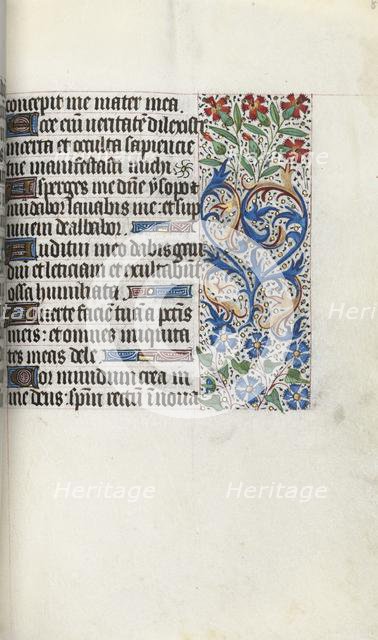 concepit me mater mea.
Ecce eni veritatē dilexisti
incerta et occulta sapiencie
tue manifestasti michi
Asperges me dn̄e ysopo et
mūdabor lavabis me: et sup
nivem dealbabor.
Auditui meo dabis gau
diū et leticiam et exultabūt
ossa humiliata.
Averte faciē tuā a pctīs
meis: et om̄es iniquita
tes meas dele.
Cor mundum crea in
me deus: spm̄ rectū innova
Heritage
Heritage
Heritage
Heritage
Heritage
Heritage